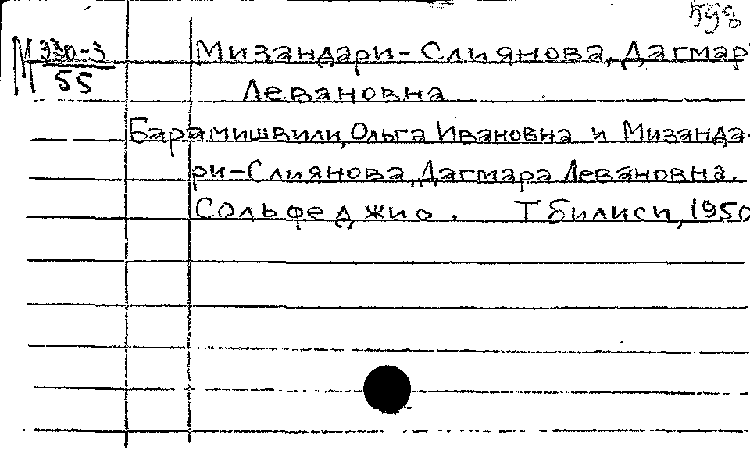 М 330-3/55 Мизандари-Слиянова, Дагмар
Левановна
Барамишвили, Ольга Ивановна и Мизанда-
ри-Слиянова, Дагмара Левановна.
Сольфеджио. Тбилиси, 1950